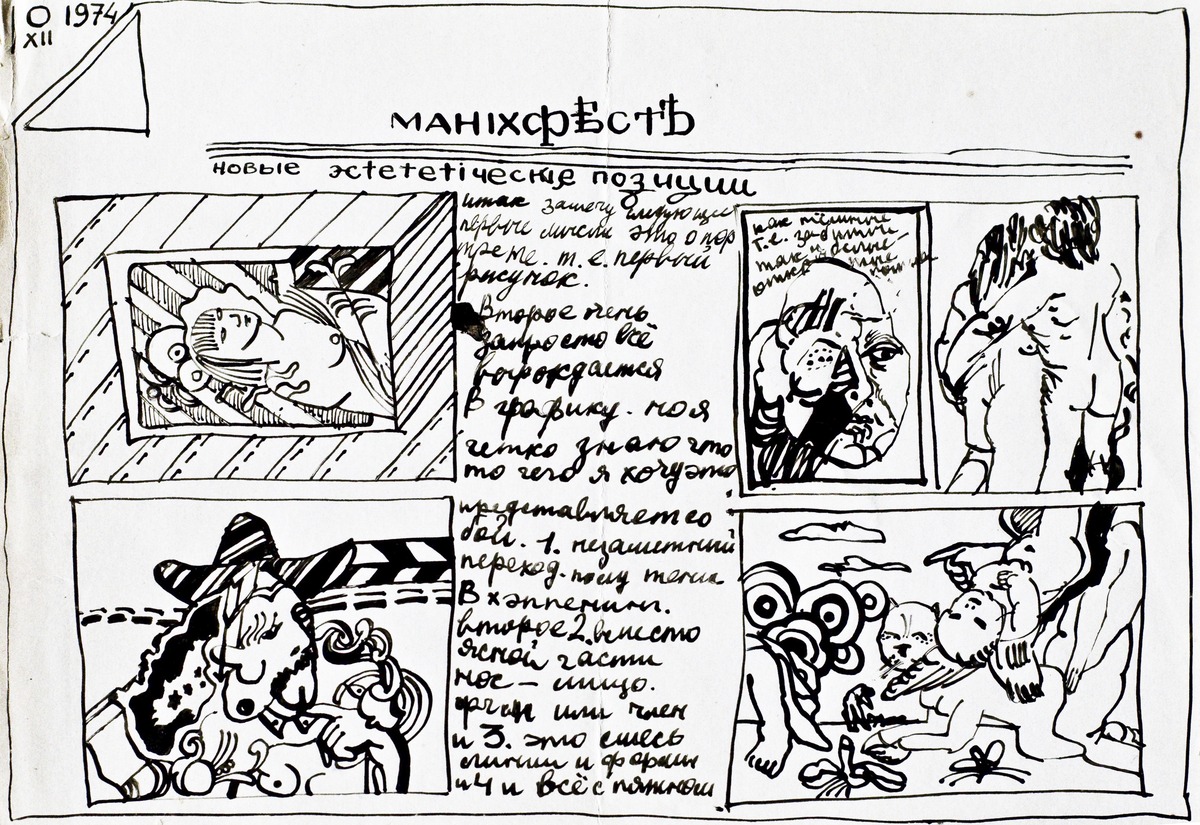 О 1974
XII
МАНІХФѢСТЪ
новые эстететіческие позиции
итак замечу следующие
первые мысли это о пор
трете. т. е. первый
рисунок.
Второе тень
запросто всё
вырождается
В графику. но я
четко знаю что
то чего я хочу это
представляет со
бой. 1. незаметный
переход. полу тени
В хэппенинг.
второе 2. вместо
ясной части
нос — лицо.
или член
и 3. это смесь
линии и форми
и 4 и всё с пятном
как
т.е.
так и